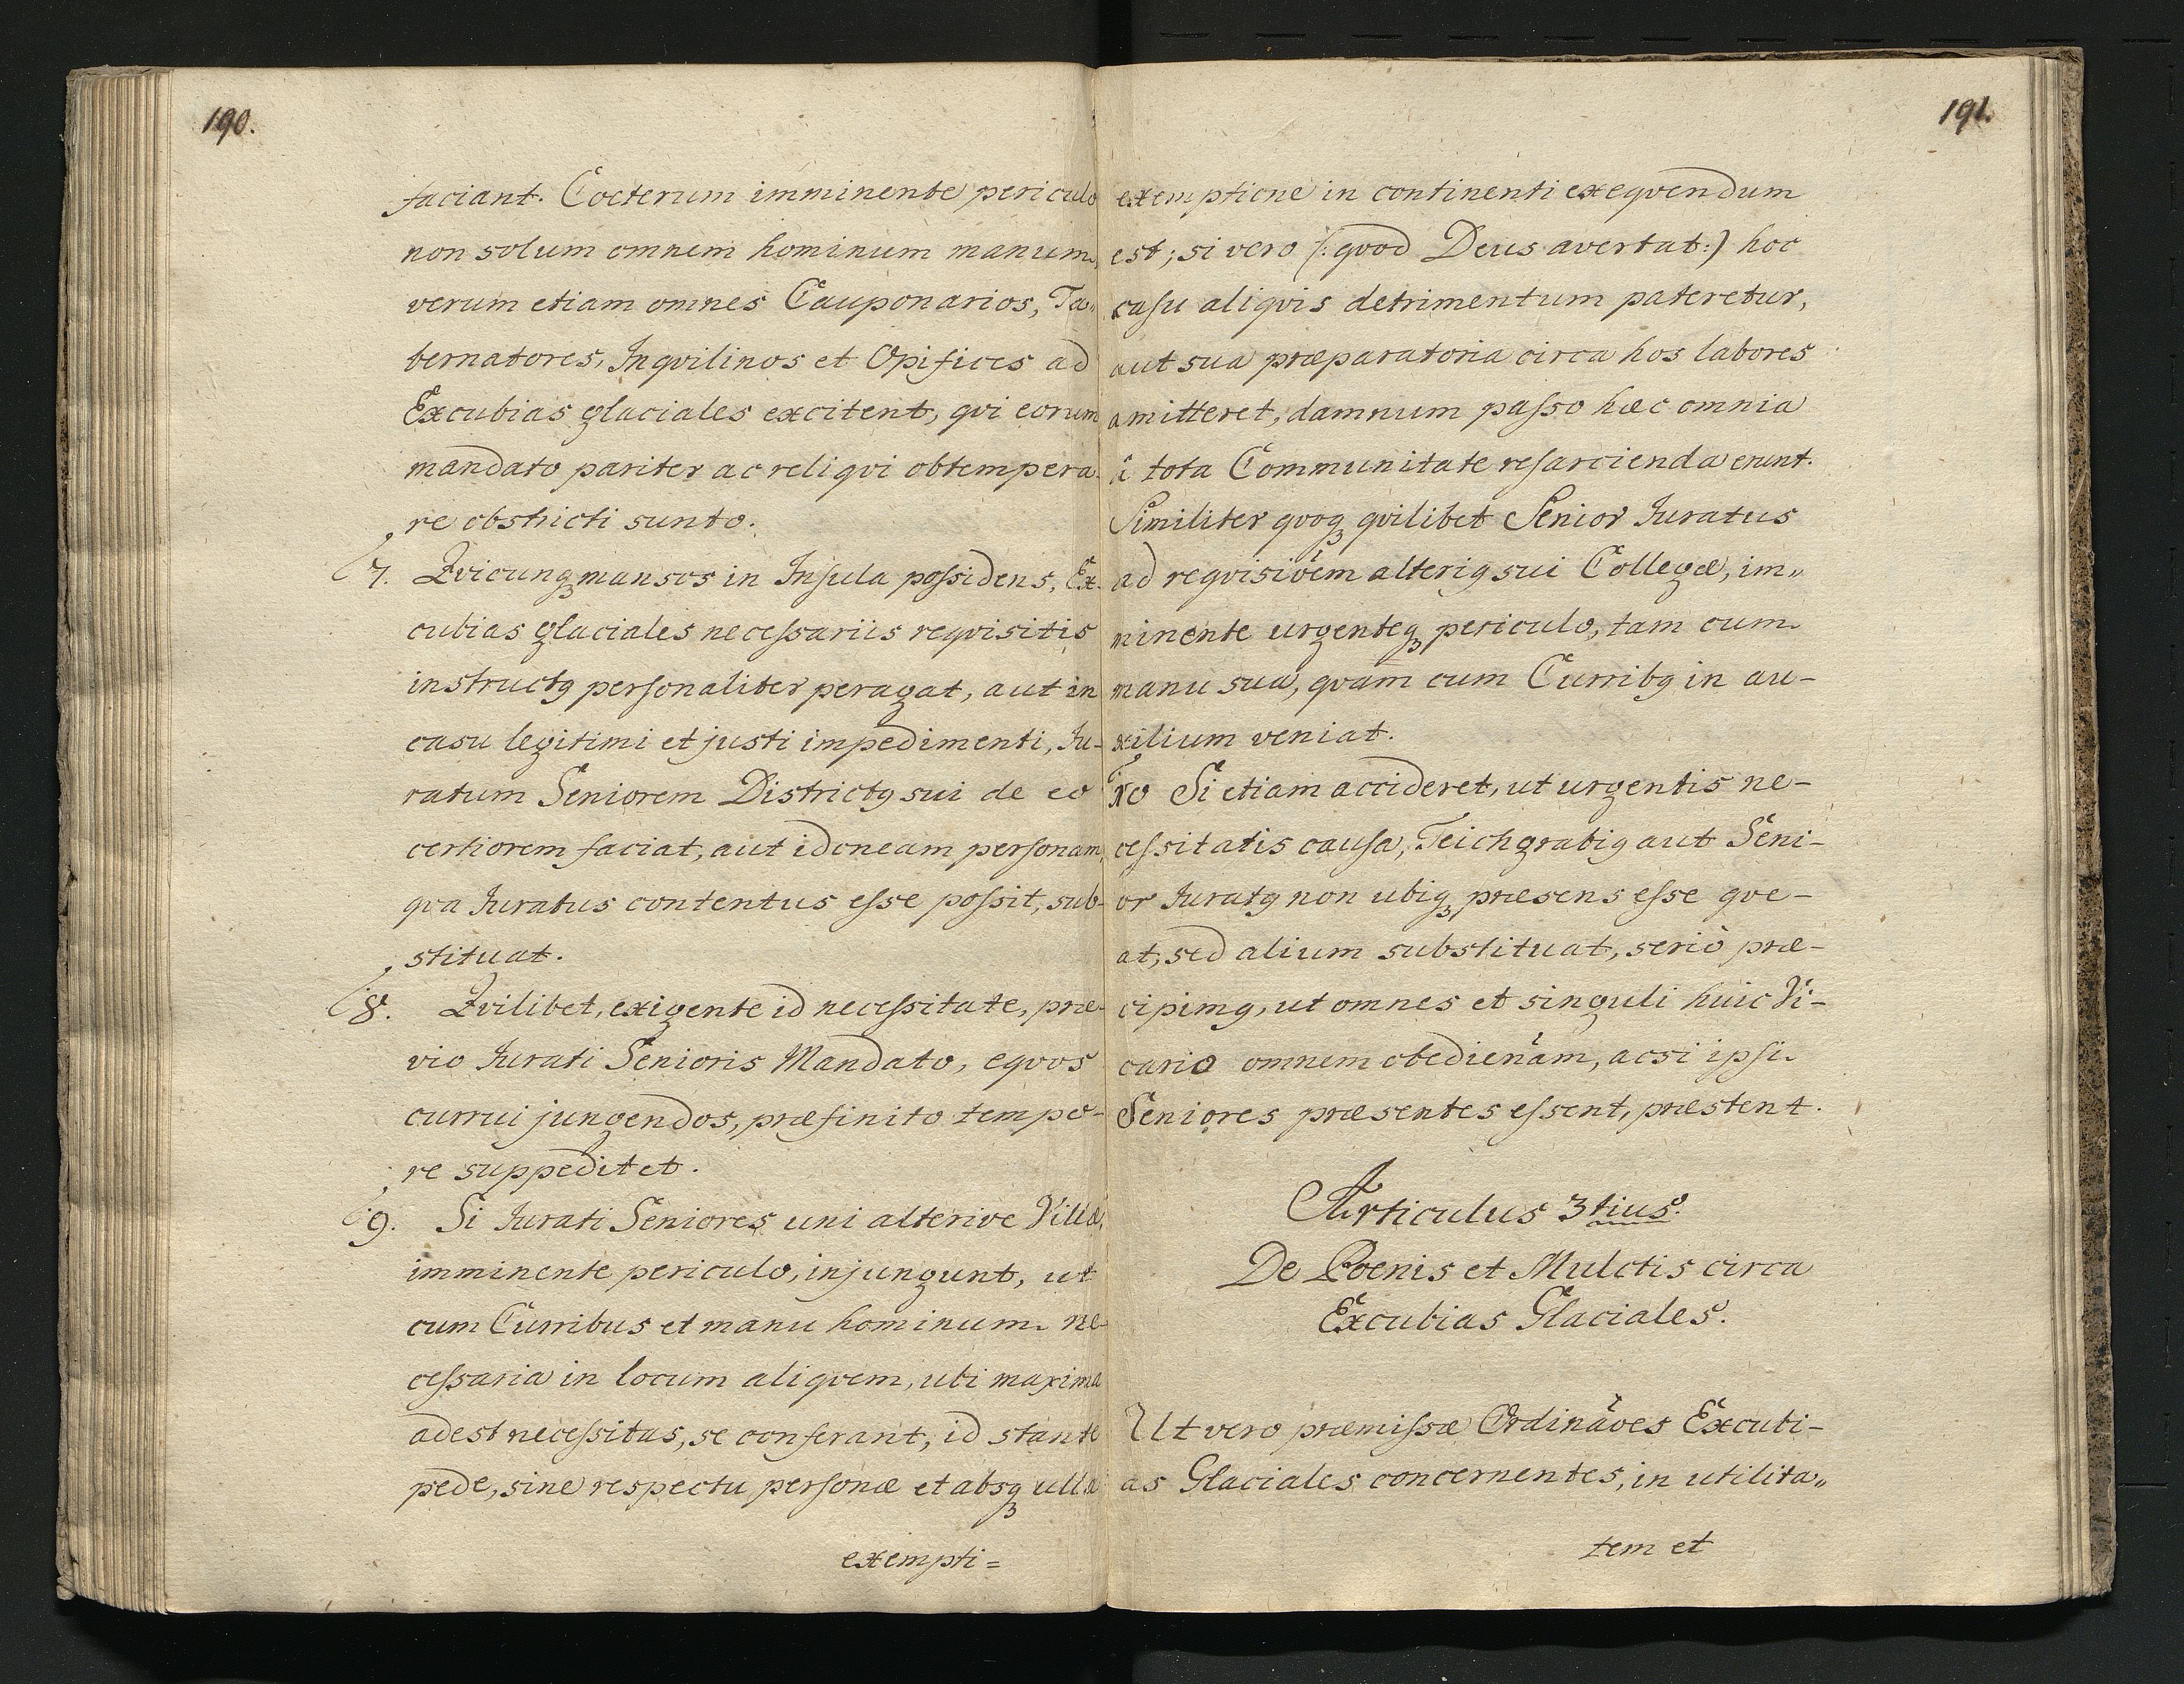 190.
faciant. Coeterum imminente periculo
non solum omnem hominum manum,
verum etiam omnes Cauponarios, Ta„
bernatores, Inqvilinos et Opifices ad
Excubias glaciales excitent, qvi eorum
mandato pariter ac reliqvi obtempera-
re obstricti sunto.
7. Qvicunqꝫ mansos in Insula poſsidens, Ex-
cubias glaciales neceſsariis reqvisitis
instructꝯ perſonaliter peragat, aut in
casu legitimi et justi impedimenti, Ju-
ratum Seniorem Districtꝯ sui de eo
certiorem faciat, aut idoneam perſonam,
qva Juratus contentus eſse poſsit, sub-
stituat.
8. Qvilibet, exigente id neceſsitate, præ-
vio Jurati Senioris Mandato, eqvos
currui jungendos, præfinito tempo-
re suppeditet.
9. Si Jurati Seniores uni alterive Villæ,
imminente periculo, injungunt, ut
cum Curribus et manu hominum ne-
ceſsaria in locum aliqvem, ubi maxima
adest neceſsitas, se conferant, id stante
pede, sine respectu perſonæ et absqꝫ ulla
exempti=
191.
exemptione in continenti exeqvendum
est; si vero (: qvod Deus avertat :) hoc
caſu aliqvis detrimentum pateretur,
aut sua præparatoria circa hos labores
amitteret, damnum paſso hæc omnia
â tota Communitate reſarcienda erunt.
Similiter qvoqꝫ qvilibet Senior Juratus
ad reqvisiõem alteriꝯ sui Collegæ, im„
minente urgenteqꝫ periculo, tam cum
manu sua, qvam cum Curribꝯ in au-
xilium veniat.
10 Si etiam accideret, ut urgentis ne-
ceſsitatis cauſa, Teichgrabiꝯ aut Seni-
or Juratꝯ non ubiqꝫ præsens eſse qve-
at, sed alium substituat, seriò præ-
cipimꝯ, ut omnes et singuli huic Vi-
cario omnem obedienãm, acsi ipſi
Seniores præsentes eſsent, præstent.
Articulus 3tius.
De Poenis et Mulctis circa
Excubias Glaciales.
Ut vero præmiſsæ Ordinãoes Excubi-
as Glaciales concernentes, in utilita„
tem et